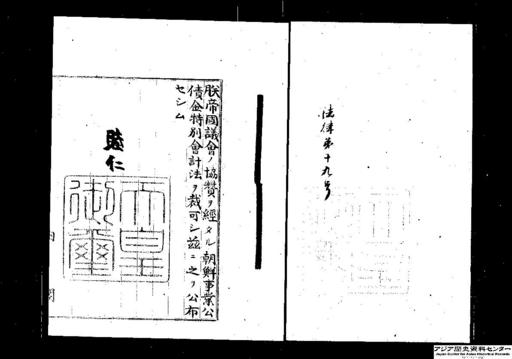 法律第十九号
朕帝國議會ノ協贊ヲ經タル朝鮮事業公
債金特別會計法ヲ裁可シ茲ニ之ヲ公布
セシム
睦仁
天皇
御璽
内
閣
アジア歴史資料センター
Japan Center for Asian Historical Records